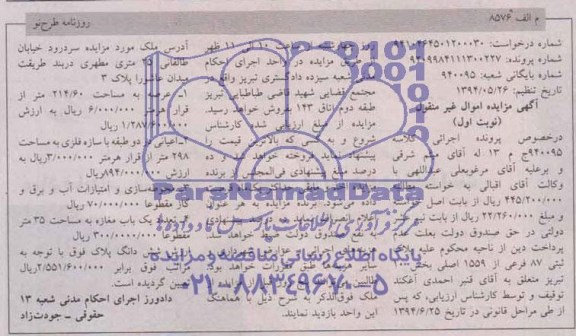 م الف ۸۵۷۶
روزنامه طرح‌نو
شماره درخواست: ۹۴۱۰۴۶۴۵۰۱۲۰۰۰۳۰
شماره پرونده: ۹۴۰۹۹۸۴۱۱۱۳۰۰۲۲۷
شماره بایگانی شعبه: ۹۴۰۰۹۵
تاریخ تنظیم: ۱۳۹۴/۰۵/۲۶
آگهی مزایده اموال غیر منقول
(نوبت اول)
درخصوص پرونده اجرائی کلاسه
۹۴۰۰۹۵ج م ۱۳ له آقای میثم شرفی
و برعلیه آقای مرغوبعلی عبداللهی با
وکالت آقای اقبالی به خواسته مطالبه
۴۴۵/۲۰۰/۰۰۰ ریال از بابت اصل خواسته
و مبلغ ۲۲/۲۶۰/۰۰۰ ریال از بابت نیم عشر
دولتی در حق صندوق دولت بعلت عدم
پرداخت دین از ناحیه محکوم علیه پلاک
ثبتی ۸۷ فرعی از ۱۵۵۹ اصلی بخش ۱۰
تبریز متعلق به آقای قنبر احمدی آغکند
توقیف و توسط کارشناس ارزیابی، که پس
از طی مراحل قانونی در تاریخ ۱۳۹۴/۶/۲۵
روز چهارشنبه از ساعت ۱۰ الی ۱۱ ظهر
از طریق مزایده در واحد اجرای احکام
مدنی شعبه سیزده دادگستری تبریز واقع در
مجتمع قضایی شهید قاضی طباطبایی تبریز
طبقه دوم اتاق ۱۴۳ بفروش خواهد رسید.
مزایده از مبلغ ارزیابی شده کارشناس
شروع و به کسی که بالاترین قیمت را
پیشنهاد نماید فروخته خواهد شد و ده
درصد مبلغ پیشنهادی فی‌المجلس از برنده
ملک فوق‌الذکر به شرح ذیل با هماهنگی
این واحد بازدید نمایند.
آدرس ملک مورد مزایده سردرود خیابان
طالقانی ۲۵ متری مطهری دربند طریقت
میدان عاشورا پلاک ۳
۱-عرصه به مساحت ۲۱۴/۶۰ متر از
قرار هرمتر ۶/۰۰۰/۰۰۰ ریال به ارزش
۱/۲۸۷/۶۰۰/۰۰۰ ریال
۲-اعیانی در دو طبقه با سازه فلزی به مساحت
۲۹۸ متر از قرار هرمتر ۳/۰۰۰/۰۰۰ریال به
ارزش ۸۹۴/۰۰۰/۰۰۰ریال
۳-محوطه‌سازی و امتیازات آب و برق و
گاز مقطوعا ۷۰/۰۰۰/۰۰۰ ریال
۴-تعداد یک باب مغازه به مساحت ۳۵ متر
مقطوعا ۳۰۰/۰۰۰/۰۰۰ ریال
دانگ پلاک فوق با توجه به
مراتب فوق برابر ۲/۵۵۱/۶۰۰/۰۰۰ ریال
تعیین گردیده است.
دادورز اجرای احکام مدنی شعبه ۱۳
حقوقی ـ جودت‌زاد
ParsNamadData
مرکز فرآوری اطلاعات پارس نماد داده‌ها
پایگاه اطلاع رسانی مناقصه و مزایده
۰۲۱-۸۸۳۴۹۶۷۰-۵